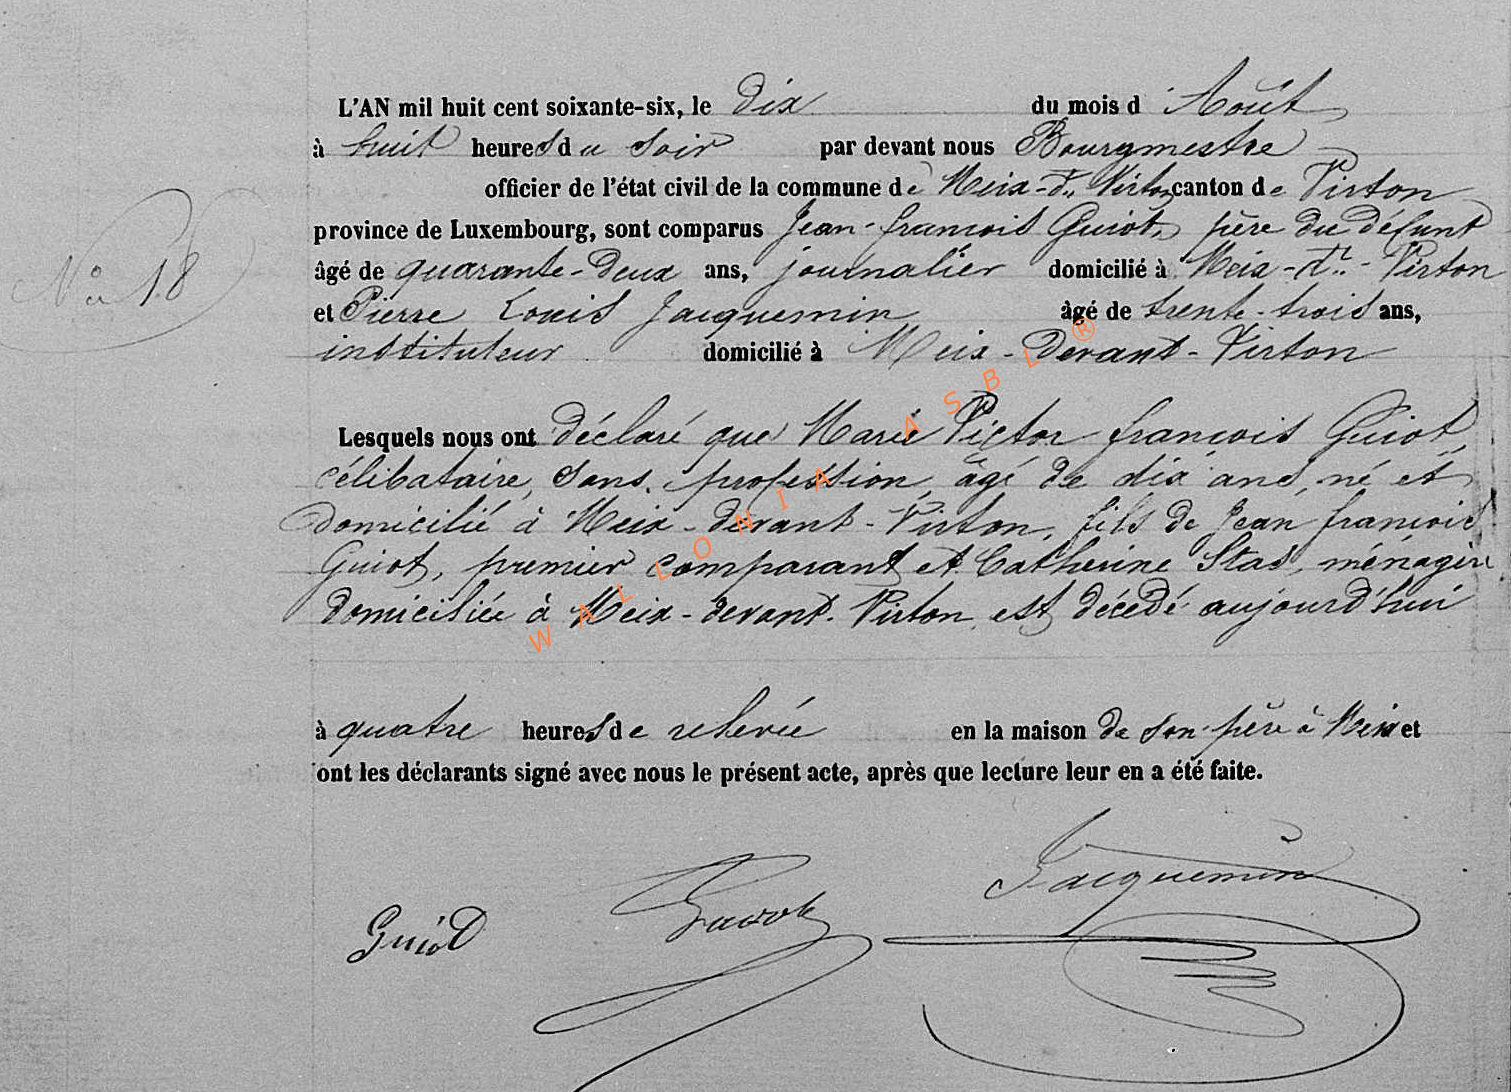 L'AN mil huit cent soixante-six, le dix du mois d Août
à huit heures du soir par devant nous Bourgmestre
officier de l'état civil de la commune de Meix-dt. Virton canton de Virton
province de Luxembourg, sont comparus Jean-françois Guiot, père du défunt
âgé de quarante-deux ans, journalier domicilié à Meix-dt.-Virton
No 18
et Pierre Louis Jacquemin âgé de trente-trois ans,
instituteur domicilié à Meix-Devant-Virton
Lesquels nous ont déclaré que Marie Victor françois Guiot,
célibataire, sans profession, âgé de dix ans, né et
domicilié à Meix-devant-Virton, fils de Jean françois
Guiot, premier comparant et Catherine Stas, ménagère
domiciliée à Meix-devant-Virton est décédé aujourd'hui
à quatre heures de relevée en la maison de son père à Meix et
ont les déclarants signé avec nous le présent acte, après que lecture leur en a été faite.
Jacquemin
Guiot
WALLONIA ASBL ®